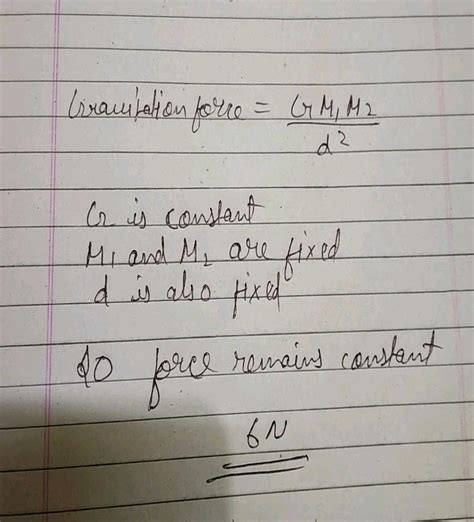 Gravitation force = GM₁M₂ / d²
G is constant
M₁ and M₂ are fixed
d is also fixed
SO force remains constant
6N